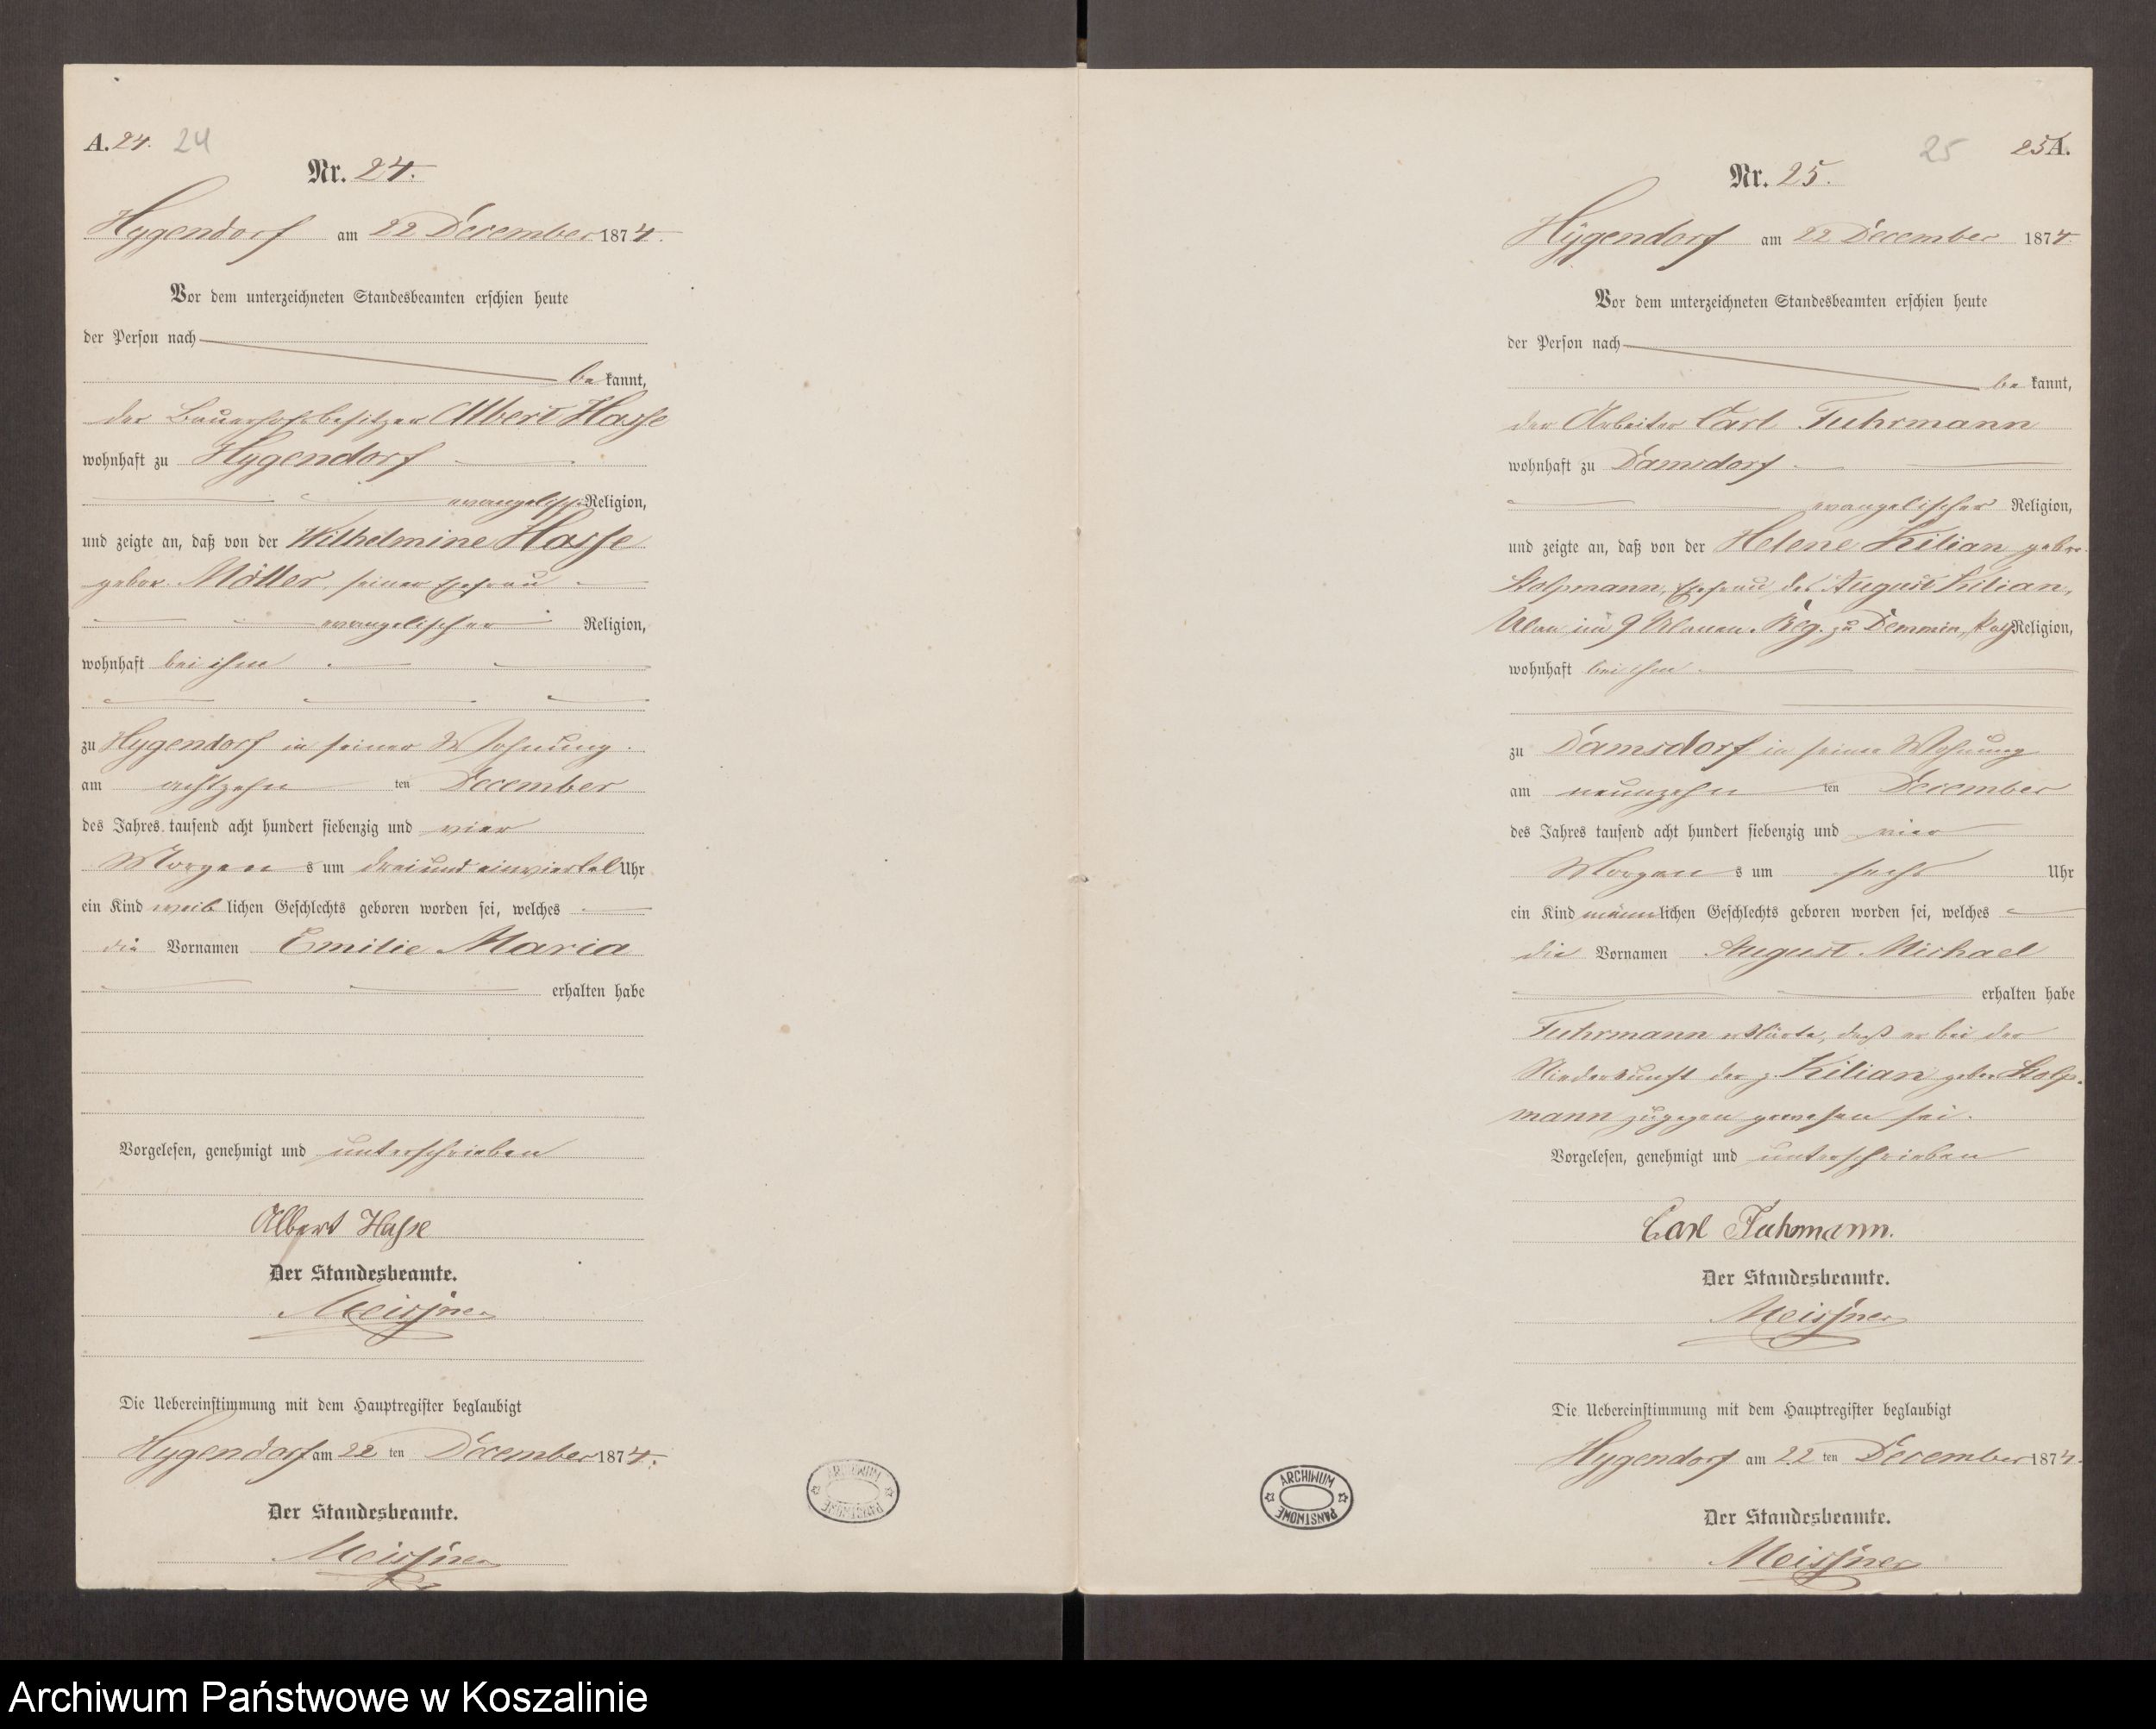 A. 24. 24
Nr. 24.
Hygendorf am 22 December 1874.
Vor dem unterzeichneten Standesbeamten erschien heute
der Person nach
bekannt,
der Bauerhofsbesitzer Albert Hasse
wohnhaft zu Hygendorf
evangelischer Religion,
und zeigte an, daß von der Wilhelmine Hasse
gebor. Möller, seiner Ehefrau
evangelischer Religion,
wohnhaft bei ihm
zu Hygendorf in seiner Wohnung.
am achtzehnten December
des Jahres tausend acht hundert siebenzig und vier
Morgens um drei und einviertel Uhr
ein Kind weiblichen Geschlechts geboren worden sei, welches
die Vornamen Emilie Maria
erhalten habe
Vorgelesen, genehmigt und unterschrieben
Albert Hasse
Der Standesbeamte.
Meissner
Die Uebereinstimmung mit dem Hauptregister beglaubigt
Hygendorf am 22ten December 1874.
Der Standesbeamte.
Meissner
ARCHIWUM PAŃSTWOWE
25 25A.
Nr. 25.
Hygendorf am 22 December 1874.
Vor dem unterzeichneten Standesbeamten erschien heute
der Person nach
bekannt,
der Arbeiter Carl Fuhrmann
wohnhaft zu Damsdorf
evangelischer Religion,
und zeigte an, daß von der Helene Kilian gebor.
Stolpmann, Ehefrau des August Kilian,
Ulan im 9 Ulanen. Reg. zu Demmin, kath Religion,
wohnhaft bei ihm
zu Damsdorf in seiner Wohnung
am neunzehnten December
des Jahres tausend acht hundert siebenzig und vier
Morgens um sechs Uhr
ein Kind männlichen Geschlechts geboren worden sei, welches
die Vornamen August Michael
erhalten habe
Fuhrmann erklärte, daß er bei der
Niederkunft der p. Kilian gebor. Stolp-
mann zugegen gewesen sei.
Vorgelesen, genehmigt und unterschrieben
Carl Fuhrmann.
Der Standesbeamte.
Meissner
Die Uebereinstimmung mit dem Hauptregister beglaubigt
Hygendorf am 22ten December 1874.
Der Standesbeamte.
Meissner
ARCHIWUM PAŃSTWOWE
Archiwum Państwowe w Koszalinie